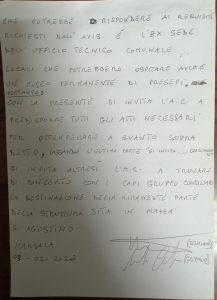 CHE POTREBBE RISPONDERE AI REQUISITI
RICHIESTI DALL'AVIS È L'EX SEDE
DELL'UFFICIO TECNICO COMUNALE,
LOCALI CHE POTREBBERO OSPITARE ANCHE
UN MUSEO PERMANENTE DI PRESEPI.
CON LA PRESENTE SI INVITA L'A.C. A
PREDISPORRE TUTTI GLI ATTI NECESSARI
PER OTTEMPERARE A QUANTO SOPRA
DETTO, L'ULTIMA PARTE "SI INVITA
SI INVITA ALTRESÌ L'A.C. A TROVARE
DI CONCERTO CON I CAPI GRUPPO CONSILIARI
LA DESTINAZIONE DELLA RIMANENTE PARTE
DELLA STRUTTURA SITA IN PIAZZA
S. AGOSTINO.